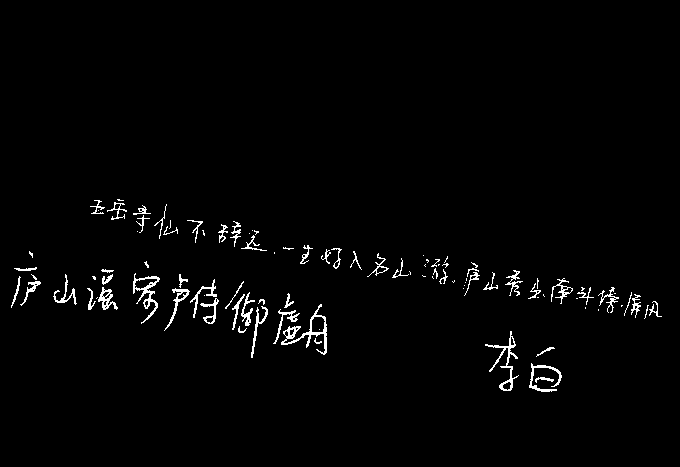 五岳寻仙不辞远,一生好入名山游,庐山秀出南斗傍,屏风
庐山谣寄卢侍御虚舟
李白